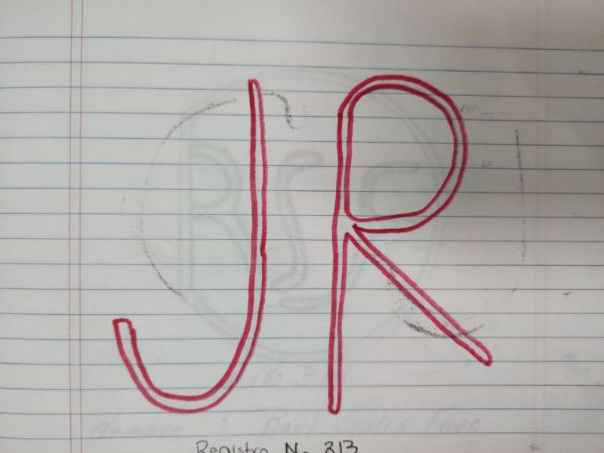 JR
Registro No 313